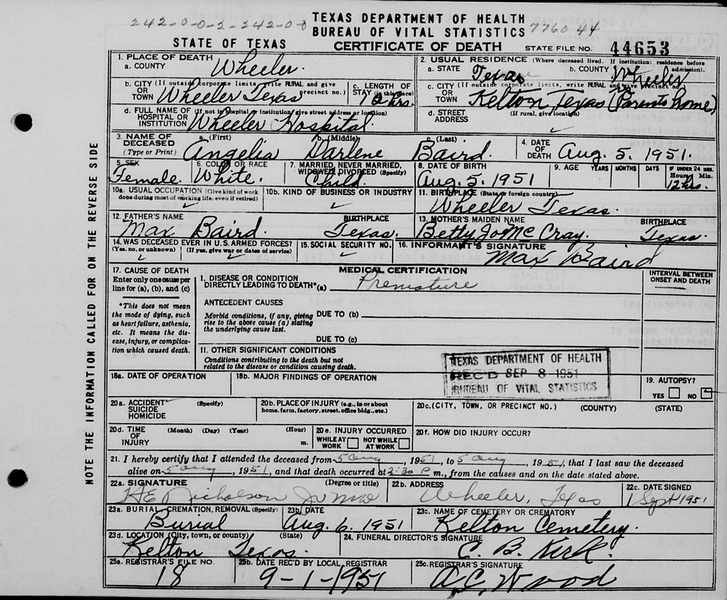 242-0-0-2-242-0-0
TEXAS DEPARTMENT OF HEALTH
BUREAU OF VITAL STATISTICS
7760 44
STATE OF TEXAS
CERTIFICATE OF DEATH
STATE FILE NO. 44653
NOTE THE INFORMATION CALLED FOR ON THE REVERSE SIDE
1. PLACE OF DEATH
a. COUNTY Wheeler
2. USUAL RESIDENCE (Where deceased lived. If institution: residence before admission).
a. STATE Texas b. COUNTY Wheeler
b. CITY (If outside corporate limits, write RURAL and give precinct no.)
OR TOWN Wheeler Texas
c. LENGTH OF STAY (in this place) 12 hrs.
c. CITY (If outside corporate limits, write RURAL and give precinct no.)
OR TOWN Kelton Texas (Parents home)
d. FULL NAME OF (If not in hospital or institution, give street address or location)
HOSPITAL OR INSTITUTION Wheeler Hospital
d. STREET ADDRESS (If rural, give location)
3. NAME OF DECEASED (Type or Print)
a. (First) Angelia b. (Middle) Darlene c. (Last) Baird
4. DATE OF DEATH Aug. 5, 1951.
5. SEX Female
6. COLOR OR RACE White
7. MARRIED, NEVER MARRIED, WIDOWED, DIVORCED (Specify) Child
8. DATE OF BIRTH Aug. 5, 1951
9. AGE YEARS MONTHS DAYS IF UNDER 24 HRS. Hours Min. 12 hrs.
10a. USUAL OCCUPATION (Give kind of work done during most of working life, even if retired)
10b. KIND OF BUSINESS OR INDUSTRY
11. BIRTHPLACE (State or foreign country) Wheeler Texas.
12. FATHER'S NAME Max Baird BIRTHPLACE Texas.
13. MOTHER'S MAIDEN NAME Betty Jo McCray BIRTHPLACE Texas
14. WAS DECEASED EVER IN U.S. ARMED FORCES? (Yes, no, or unknown) (If yes, give war or dates of service)
15. SOCIAL SECURITY NO.
16. INFORMANT'S SIGNATURE Max Baird
17. CAUSE OF DEATH
Enter only one cause per line for (a), (b), and (c)
MEDICAL CERTIFICATION
INTERVAL BETWEEN ONSET AND DEATH
1. DISEASE OR CONDITION DIRECTLY LEADING TO DEATH*(a) Premature
*This does not mean the mode of dying, such as heart failure, asthenia, etc. It means the disease, injury, or complication which caused death.
ANTECEDENT CAUSES
Morbid conditions, if any, giving rise to the above cause (a) stating the underlying cause last.
DUE TO (b)
DUE TO (c)
11. OTHER SIGNIFICANT CONDITIONS
Conditions contributing to the death but not related to the disease or condition causing death.
TEXAS DEPARTMENT OF HEALTH
REC'D SEP 8 1951
BUREAU OF VITAL STATISTICS
18a. DATE OF OPERATION
18b. MAJOR FINDINGS OF OPERATION
19. AUTOPSY?
YES NO
20a. ACCIDENT SUICIDE HOMICIDE (Specify)
20b. PLACE OF INJURY (e.g., in or about home, farm, factory, street, office bldg., etc.)
20c. (CITY, TOWN, OR PRECINCT NO.) (COUNTY) (STATE)
20d. TIME OF INJURY (Month) (Day) (Year) (Hour) m.
20e. INJURY OCCURRED WHILE AT WORK NOT WHILE AT WORK
20f. HOW DID INJURY OCCUR?
21. I hereby certify that I attended the deceased from 5 Aug, 1951, to 5 Aug, 1951, that I last saw the deceased
alive on 5 Aug, 1951, and that death occurred at 2:30 P m., from the causes and on the date stated above.
22a. SIGNATURE H E Nicholson Jr MD
22b. ADDRESS Wheeler, Texas
22c. DATE SIGNED 1 Sept 1951
23a. BURIAL, CREMATION, REMOVAL (Specify) Burial
23b. DATE Aug. 6, 1951
23c. NAME OF CEMETERY OR CREMATORY Kelton Cemetery.
23d. LOCATION (City, town, or county) (State) Kelton Texas.
24. FUNERAL DIRECTOR'S SIGNATURE C. B. Kirk
25a. REGISTRAR'S FILE NO. 18
25b. DATE REC'D BY LOCAL REGISTRAR 9-1-1951
25c. REGISTRAR'S SIGNATURE A.C. Wood